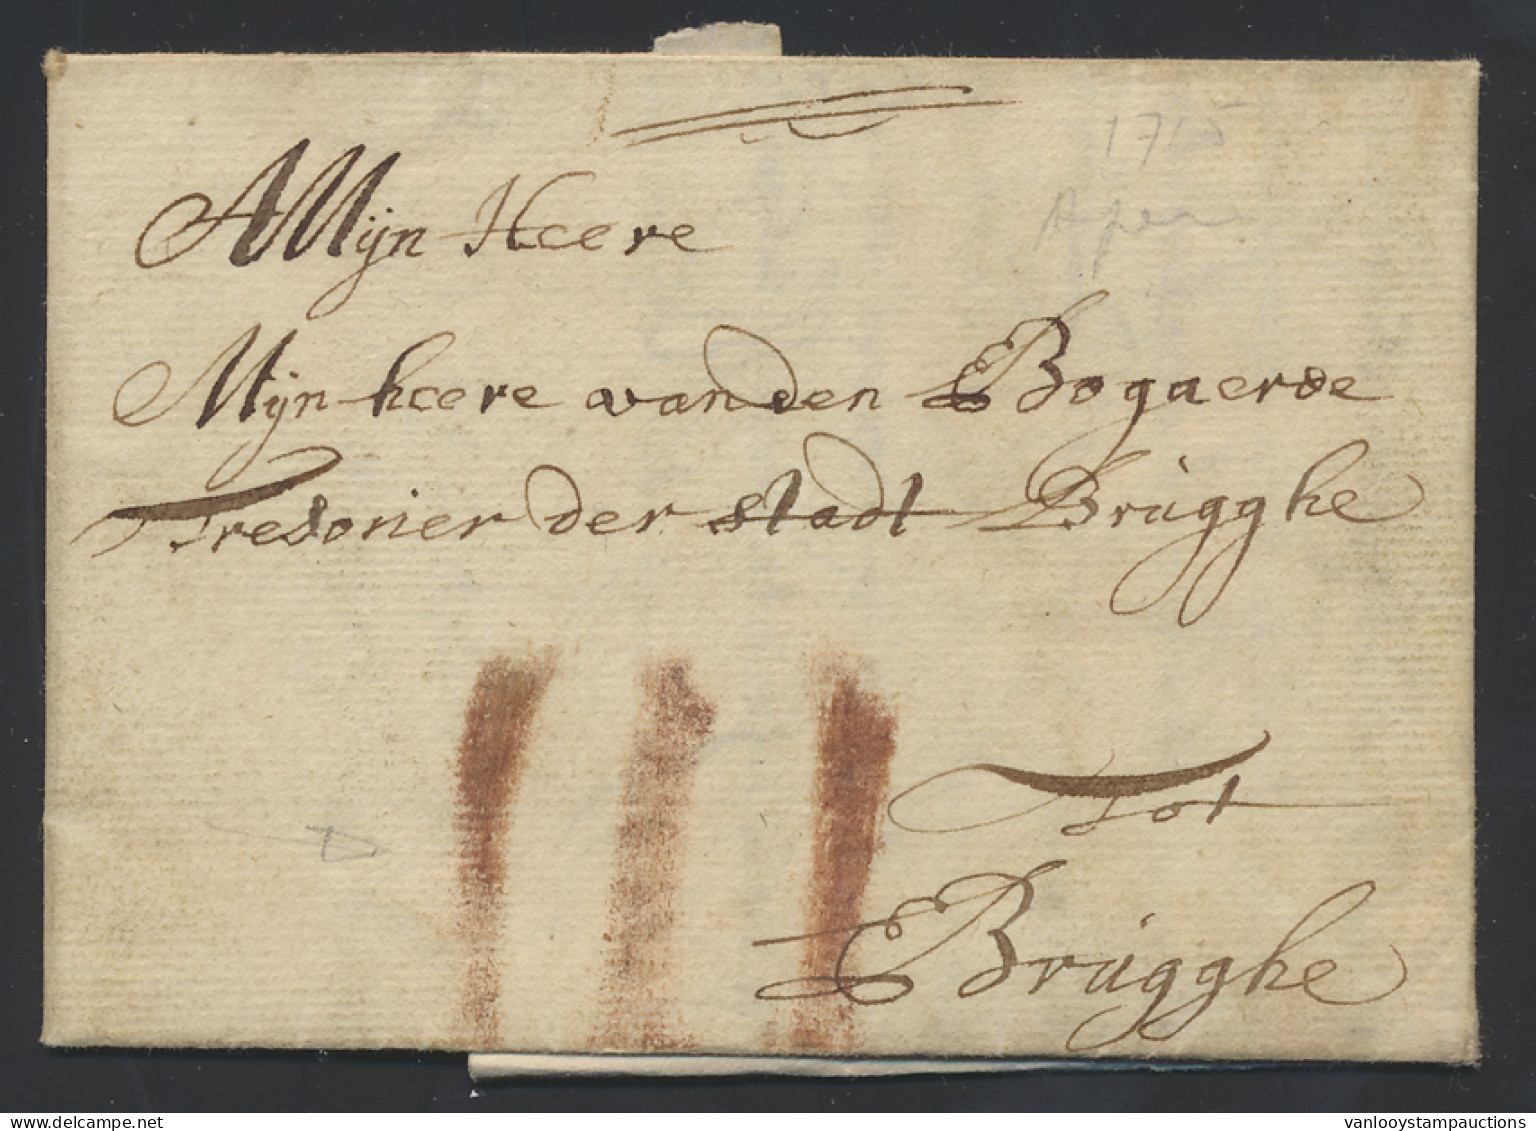 1715
A Mijn Heere
Mijn heere vanden Bogaerde
Tresorier der stadt Brùgghe
Tot
Brùgghe
delcampe.net
vanlooystampauctions